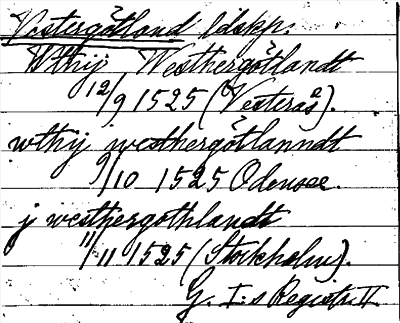 Västergötland ldskp:
Wthij Westhergötlandt
12/9 1525 (Vesterås).
wthij j westhergötlanndt
9/10 1525 Odensee.
j westhergothlandt
11/11 1525 (Stockholm).
G. I:s Registr. II